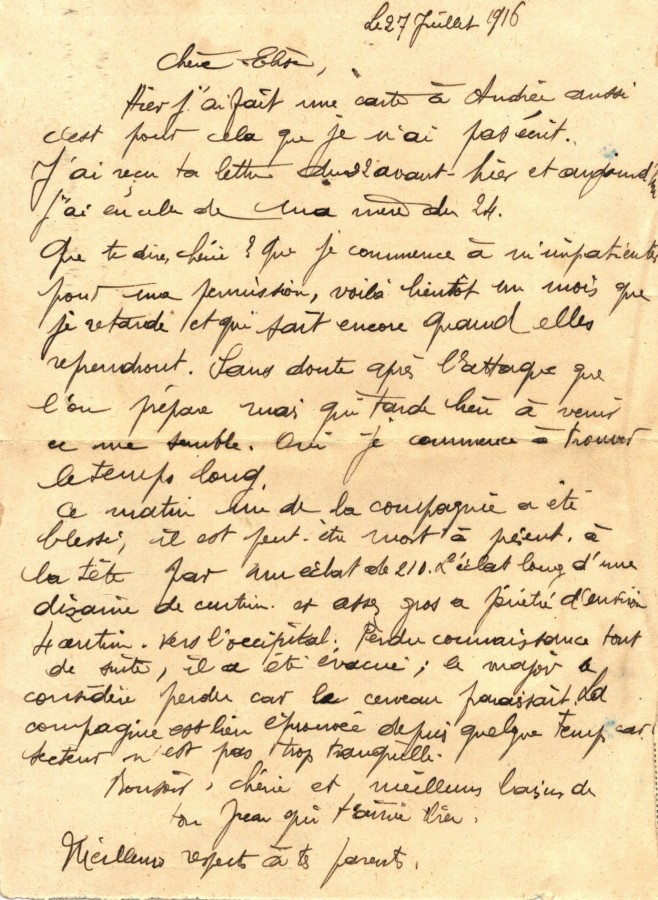 Le 27 Juillet 1916
Chère Elise,
Hier j'ai fait une carte à Andrée aussi
c'est pour cela que je n'ai pas écrit.
J'ai reçu ta lettre du 22 avant-hier et aujourd'hui
j'ai eu celle de ma mère du 24.
Que te dire, chérie ? Que je commence à m'impatienter
pour ma permission, voilà bientôt un mois que
je retarde et qui sait encore quand elles
reprendront. Sans doute après l'attaque que
l'on prépare mais qui tarde bien à venir
ce me semble. Oui je commence à trouver
le temps long.
Ce matin un de la compagnie a été
blessé, il est peut-être mort à présent, à
la tête par un éclat de 210. L'éclat long d'une
dizaine de centim. et assez gros a pénétré d'environ
4 centim. vers l'occipital. Perdu connaissance tout
de suite, il a été évacué ; le major le
considère perdu car le cerveau paraissait. La
compagnie est bien éprouvée depuis quelque temps car
secteur n'est pas trop tranquille.
Bonsoir, chérie et meilleurs baisers de
ton Jean qui t'aime bien.
Meilleurs respects à tes parents.